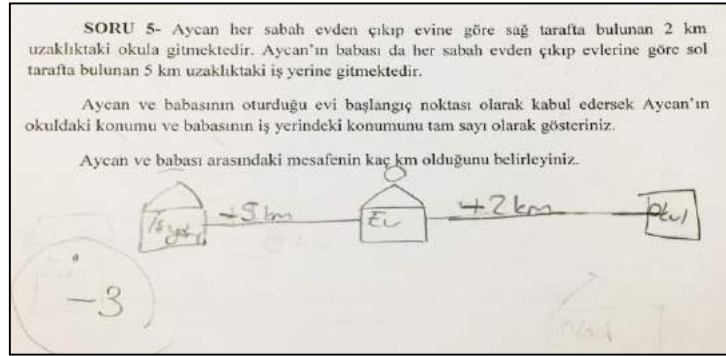 SORU 5- Aycan her sabah evden çıkıp evine göre sağ tarafta bulunan 2 km
uzaklıktaki okula gitmektedir. Aycan’ın babası da her sabah evden çıkıp evlerine göre sol
tarafta bulunan 5 km uzaklıktaki iş yerine gitmektedir.
Aycan ve babasının oturduğu evi başlangıç noktası olarak kabul edersek Aycan’ın
okuldaki konumu ve babasının iş yerindeki konumunu tam sayı olarak gösteriniz.
Aycan ve babası arasındaki mesafenin kaç km olduğunu belirleyiniz.
-5 km +2 km
Ev Okul
-3